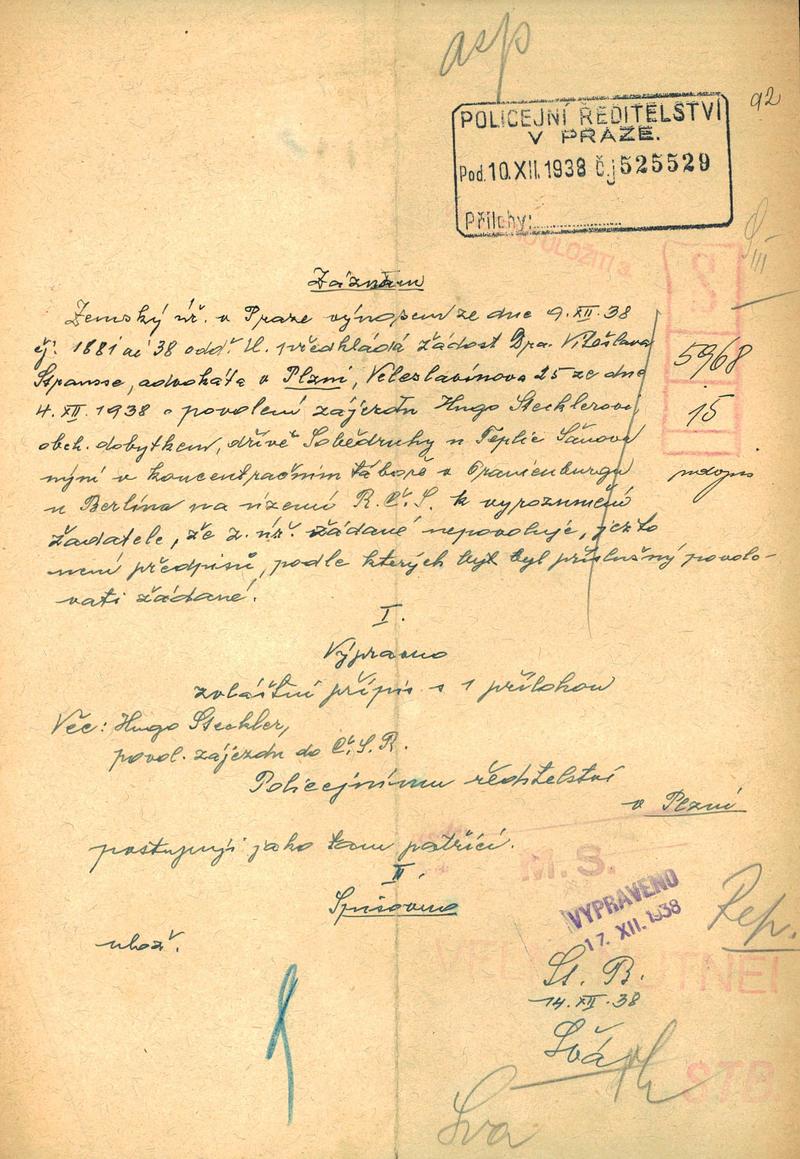 asp
92
POLICEJNÍ ŘEDITELSTVÍ
V PRAZE.
Pod. 10. XII. 1938 č.j 525529
Přílohy:
ULOŽITI
S
5968
15
podpis
Záznam
Zemský úř. v Praze výnosem ze dne 9. XII. 38
čj. 1881 ai 38 odd. předkládá žádost Dra. Vítoslava
Strausse, advokáta v Plzni, Veleslavínova 25 ze dne
4. XII. 1938 o povolení zájezdu Hugo Stecklerovi,
obch. dobytkem, dříve Sobědruhy u Teplic Šanova
nyní v koncentračním táboře v Oranienburgu
u Berlína na území R. Č. S. k vyrozumění
žadatele, že z. úř. žádané nepovoluje, ježto
není předpisů, podle kterých byl příslušný povolo-
vati žádané.
I.
Výpravno
zvláštní přípis s 1 přílohou
Věc: Hugo Steckler,
povol. zájezdu do Č. S. R.
Policejnímu ředitelství
v Plzni
postupuji jako tam patřící.
II.
Spisovno
ulož.
M. S.
VYPRAVENO
17. XII. 1938
Rep.
St. B.
14. XII. 38
STB.